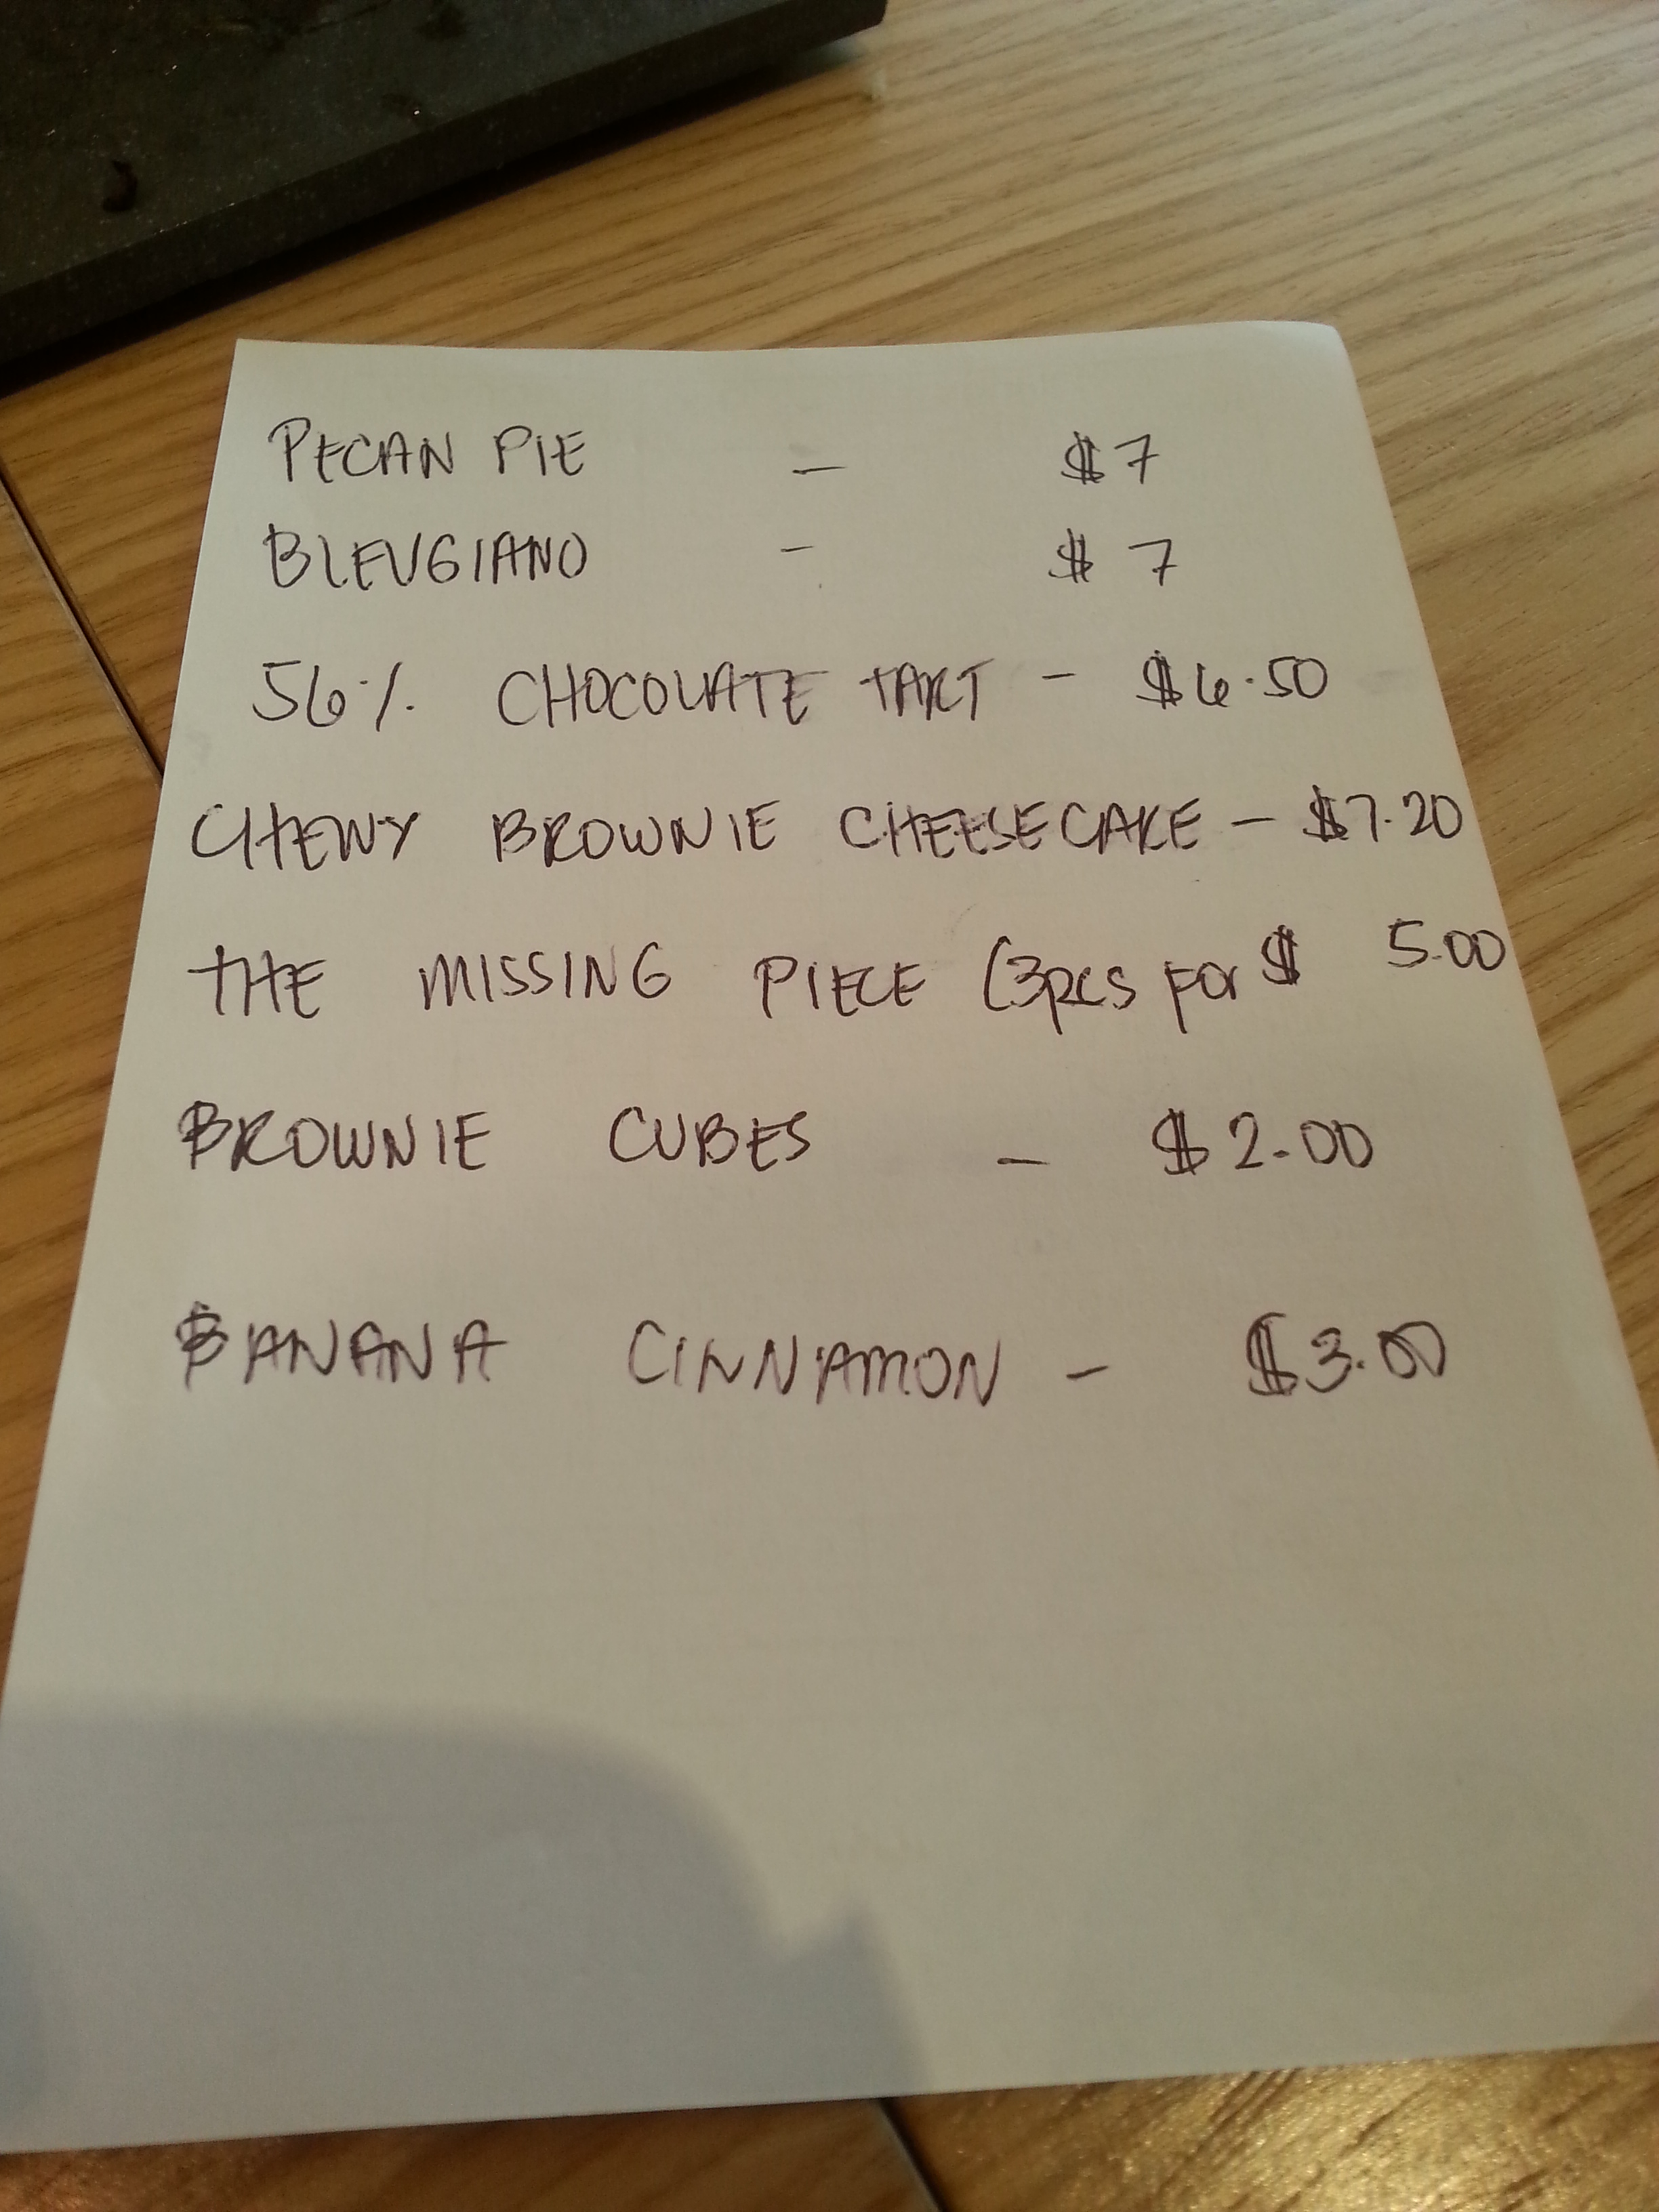 PECAN PIE - $7
BLEUGIANO - $7
56% CHOCOLATE TART - $6.50
CHEWY BROWNIE CHEESECAKE - $7.20
THE MISSING PIECE (3pcs for $ 5.00
BROWNIE CUBES - $2.00
BANANA CINNAMON - $3.00